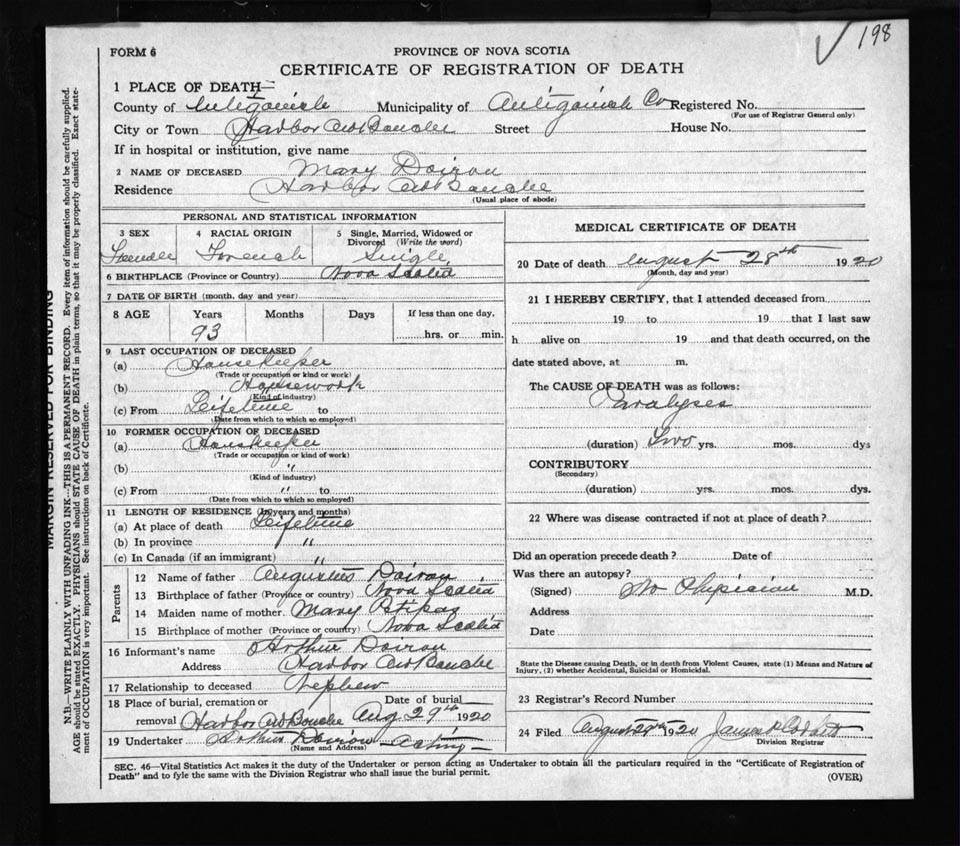 198
FORM 6
PROVINCE OF NOVA SCOTIA
CERTIFICATE OF REGISTRATION OF DEATH
1 PLACE OF DEATH—
County of Antigonish Municipality of Antigonish Co Registered No.
(For use of Registrar General only)
City or Town Harbor Au Bouche Street House No.
If in hospital or institution, give name
2 NAME OF DECEASED Mary Doiron
Residence Harbor Au Bouche
(Usual place of abode)
PERSONAL AND STATISTICAL INFORMATION
3 SEX 4 RACIAL ORIGIN 5 Single, Married, Widowed or
Divorced (Write the word)
French Single
6 BIRTHPLACE (Province or Country) Nova Scotia
7 DATE OF BIRTH (month, day and year)
8 AGE Years Months Days If less than one day,
93 hrs. or min.
9 LAST OCCUPATION OF DECEASED
(a) Housekeeper
(Trade or occupation or kind of work)
(b) Housework
(Kind of industry)
(c) From Leifetime to
(Date from which to which so employed)
10 FORMER OCCUPATION OF DECEASED
(a) Houskeeper
(Trade or occupation or kind of work)
(b) "
(Kind of industry)
(c) From " to
(Date from which to which so employed)
11 LENGTH OF RESIDENCE (In years and months)
(a) At place of death Leifetime
(b) In province "
(c) In Canada (if an immigrant) "
Parents
12 Name of father Augustus Doiron
13 Birthplace of father (Province or country) Nova Scotia
14 Maiden name of mother Mary Petipas
15 Birthplace of mother (Province or country) Nova Scotia
16 Informant's name Arthur Doiron
Address Harbor Au Bouche
17 Relationship to deceased Nephew
18 Place of burial, cremation or Date of burial
removal Harbor Au Bouche Aug 29th 1920
19 Undertaker Arthur Doiron — Acting —
(Name and Address)
MEDICAL CERTIFICATE OF DEATH
20 Date of death August 28th 1920
(Month, day and year)
21 I HEREBY CERTIFY, that I attended deceased from
19 to 19 that I last saw
h alive on 19 and that death occurred, on the
date stated above, at m.
The CAUSE OF DEATH was as follows:
Paralyses
(duration) Two yrs. mos. dys
CONTRIBUTORY
(Secondary)
(duration) yrs. mos. dys.
22 Where was disease contracted if not at place of death?
Did an operation precede death? Date of
Was there an autopsy?
(Signed) No Physician M.D.
Address
Date
State the Disease causing Death, or in death from Violent Causes, state (1) Means and Nature of
Injury, (2) whether Accidental, Suicidal or Homicidal.
23 Registrar's Record Number
24 Filed August 29th 1920
Division Registrar
SEC. 46—Vital Statistics Act makes it the duty of the Undertaker or person acting as Undertaker to obtain all the particulars required in the "Certificate of Registration of
Death" and to fyle the same with the Division Registrar who shall issue the burial permit.
(OVER)
MARGIN RESERVED FOR BINDING
N.B.—WRITE PLAINLY WITH UNFADING INK—THIS IS A PERMANENT RECORD. Every item of information should be carefully supplied.
AGE should be stated EXACTLY. PHYSICIANS should STATE CAUSE OF DEATH in plain terms, so that it may be properly classified. Exact state-
ment of OCCUPATION is very important. See instructions on back of Certificate.